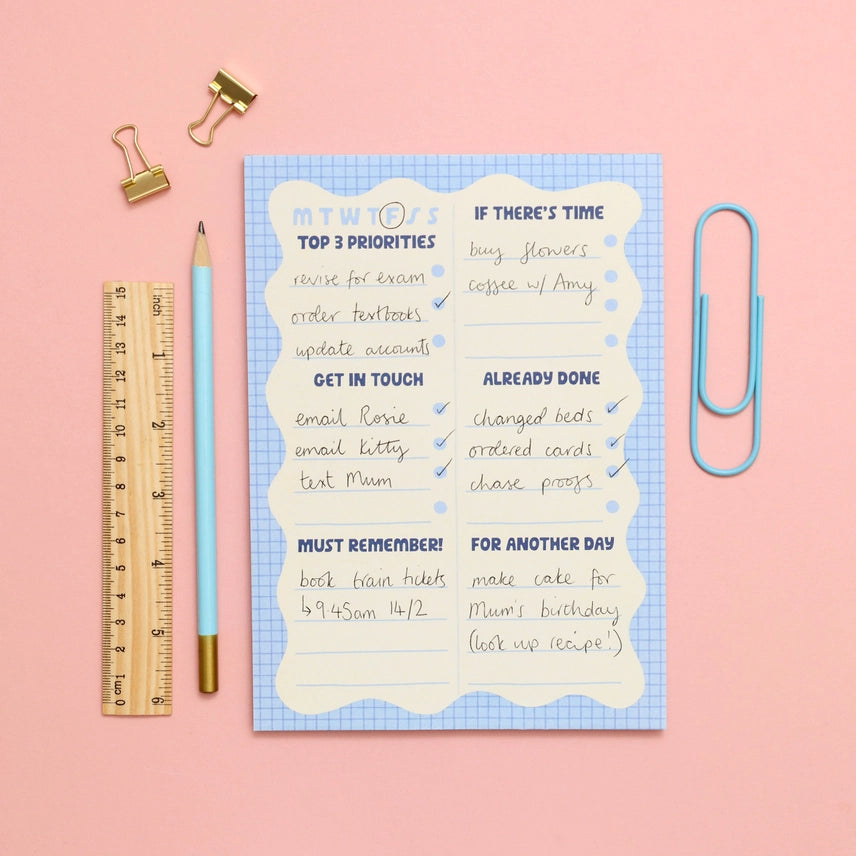 M T W T F S S
TOP 3 PRIORITIES
revise for exam
order textbooks
update accounts
GET IN TOUCH
email Rosie
email Kitty
text Mum
MUST REMEMBER!
book train tickets
↳ 9.45am 14/2
IF THERE'S TIME
buy flowers
coffee w/ Amy
ALREADY DONE
changed beds
ordered cards
chase proofs
FOR ANOTHER DAY
make cake for
Mum's birthday
(look up recipe!)
15
14
13
12
11
10
9
8
7
6
5
4
3
2
1
0 cm
inch
1
2
3
4
5
6